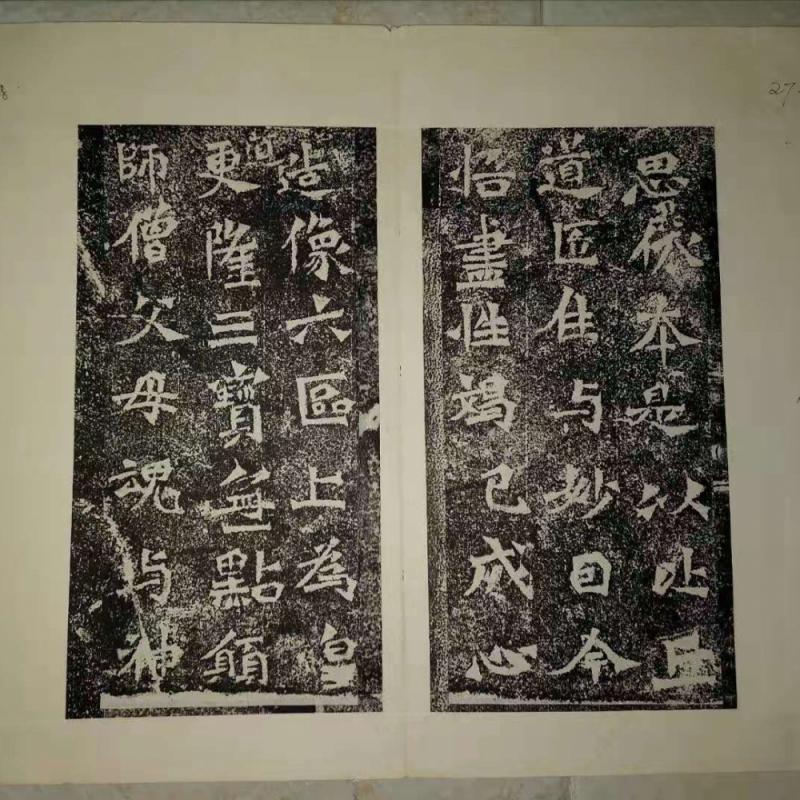 思依本是以比丘
道匠住与妙因今
招盡性竭己成心
造像六區上為皇
道更隆三寶無點願
師僧父母魂与神
27